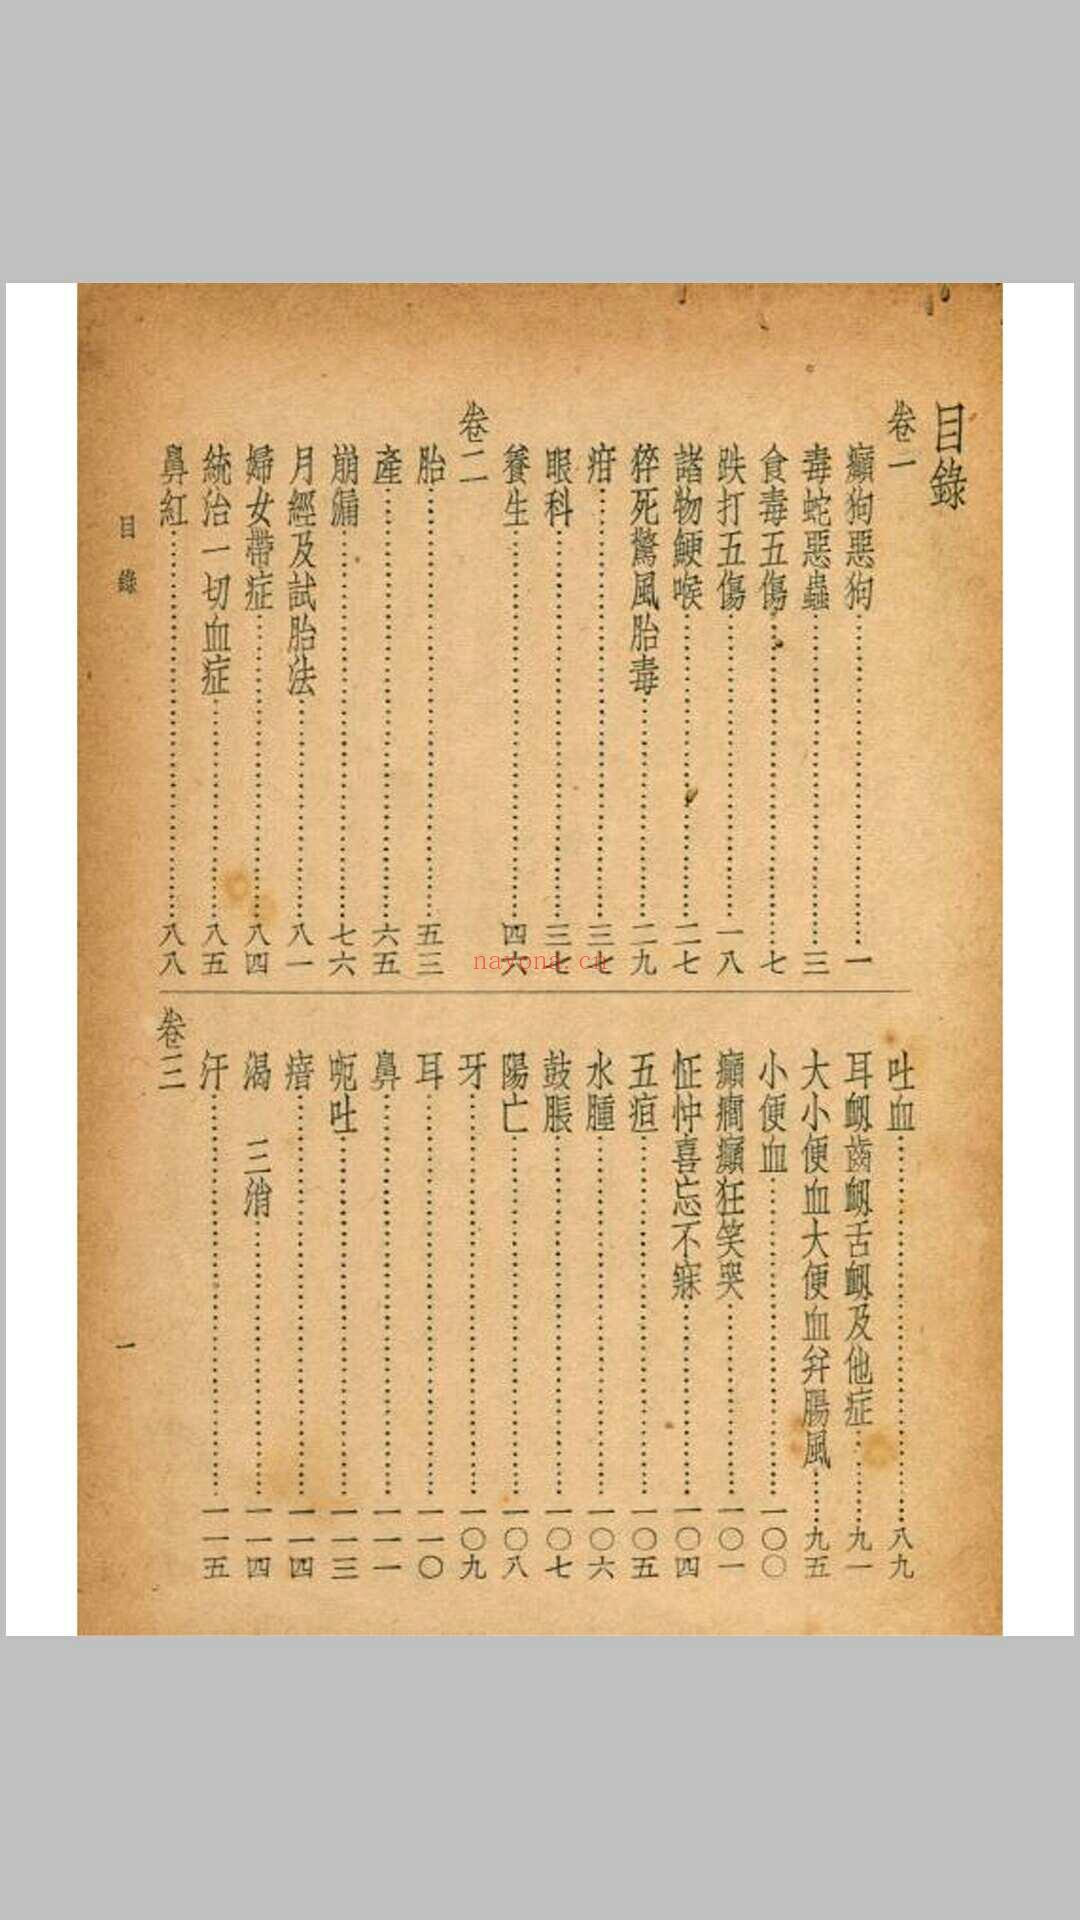 目錄
卷一
癲狗惡狗……一
毒蛇惡蟲……三
食毒五傷……七
跌打五傷……一八
諸物鯁喉……二七
猝死驚風胎毒……二九
疳……三七
眼科……三七
養生……四六
卷二
胎……五三
產……六五
崩漏……七六
月經及試胎法……八一
婦女帶症……八四
統治一切血症……八五
鼻紅……八八
吐血……八九
耳衂齒衂舌衂及他症……九一
大小便血大便血并腸風……九五
小便血……一〇〇
癲癎癲狂笑哭……一〇一
怔忡喜忘不寐……一〇四
五疸……一〇五
水腫……一〇六
鼓脹……一〇七
陽亡……一〇八
牙……一〇九
耳……一一〇
鼻……一一一
呃吐……一一三
瘖……一一四
渴 三消……一一四
汗……一一五
卷三
目錄
一
nayona.cn